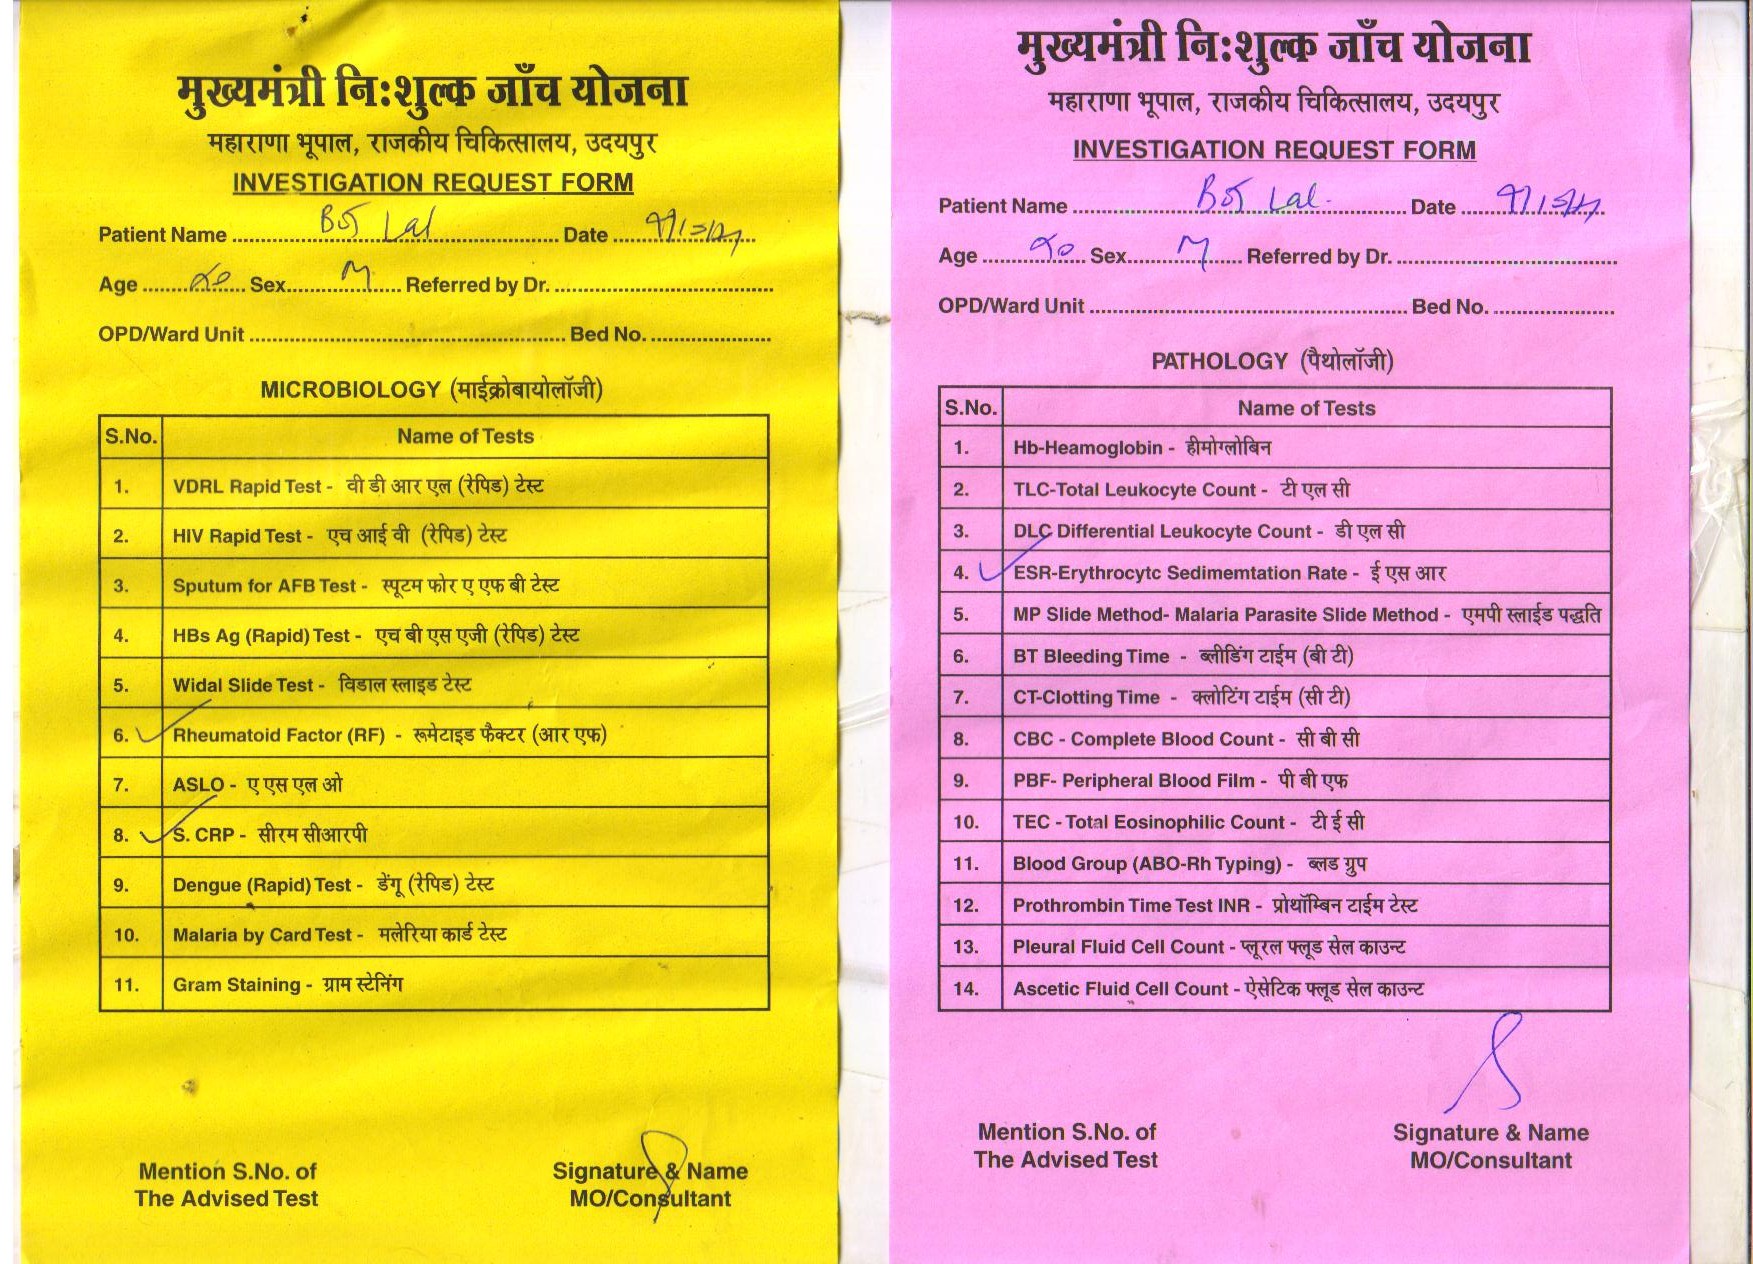 मुख्यमंत्री नि:शुल्क जाँच योजना
महाराणा भूपाल, राजकीय चिकित्सालय, उदयपुर
INVESTIGATION REQUEST FORM
Patient Name ........ Lal ........ Date ........
Age ........ Sex ........ M ........ Referred by Dr. ........
OPD/Ward Unit ........ Bed No. ........
MICROBIOLOGY (माईक्रोबायोलॉजी)
S.No. Name of Tests
1. VDRL Rapid Test - वी डी आर एल (रेपिड) टेस्ट
2. HIV Rapid Test - एच आई वी (रेपिड) टेस्ट
3. Sputum for AFB Test - स्पूटम फोर ए एफ बी टेस्ट
4. HBs Ag (Rapid) Test - एच बी एस एजी (रेपिड) टेस्ट
5. Widal Slide Test - विडाल स्लाइड टेस्ट
6. Rheumatoid Factor (RF) - रूमेटाइड फैक्टर (आर एफ)
7. ASLO - ए एस एल ओ
8. S. CRP - सीरम सीआरपी
9. Dengue (Rapid) Test - डेंगू (रेपिड) टेस्ट
10. Malaria by Card Test - मलेरिया कार्ड टेस्ट
11. Gram Staining - ग्राम स्टेनिंग
Mention S.No. of
The Advised Test
Signature & Name
MO/Consultant
मुख्यमंत्री नि:शुल्क जाँच योजना
महाराणा भूपाल, राजकीय चिकित्सालय, उदयपुर
INVESTIGATION REQUEST FORM
Patient Name ........ Lal ........ Date ........
Age ........ Sex ........ M ........ Referred by Dr. ........
OPD/Ward Unit ........ Bed No. ........
PATHOLOGY (पैथोलॉजी)
S.No. Name of Tests
1. Hb-Heamoglobin - हीमोग्लोबिन
2. TLC-Total Leukocyte Count - टी एल सी
3. DLC Differential Leukocyte Count - डी एल सी
4. ESR-Erythrocytc Sedimemtation Rate - ई एस आर
5. MP Slide Method- Malaria Parasite Slide Method - एमपी स्लाईड पद्धति
6. BT Bleeding Time - ब्लीडिंग टाईम (बी टी)
7. CT-Clotting Time - क्लोटिंग टाईम (सी टी)
8. CBC - Complete Blood Count - सी बी सी
9. PBF- Peripheral Blood Film - पी बी एफ
10. TEC - Total Eosinophilic Count - टी ई सी
11. Blood Group (ABO-Rh Typing) - ब्लड ग्रुप
12. Prothrombin Time Test INR - प्रोथॉम्बिन टाईम टेस्ट
13. Pleural Fluid Cell Count - प्लूरल फ्लूड सेल काउन्ट
14. Ascetic Fluid Cell Count - ऐसेटिक फ्लूड सेल काउन्ट
Mention S.No. of
The Advised Test
Signature & Name
MO/Consultant